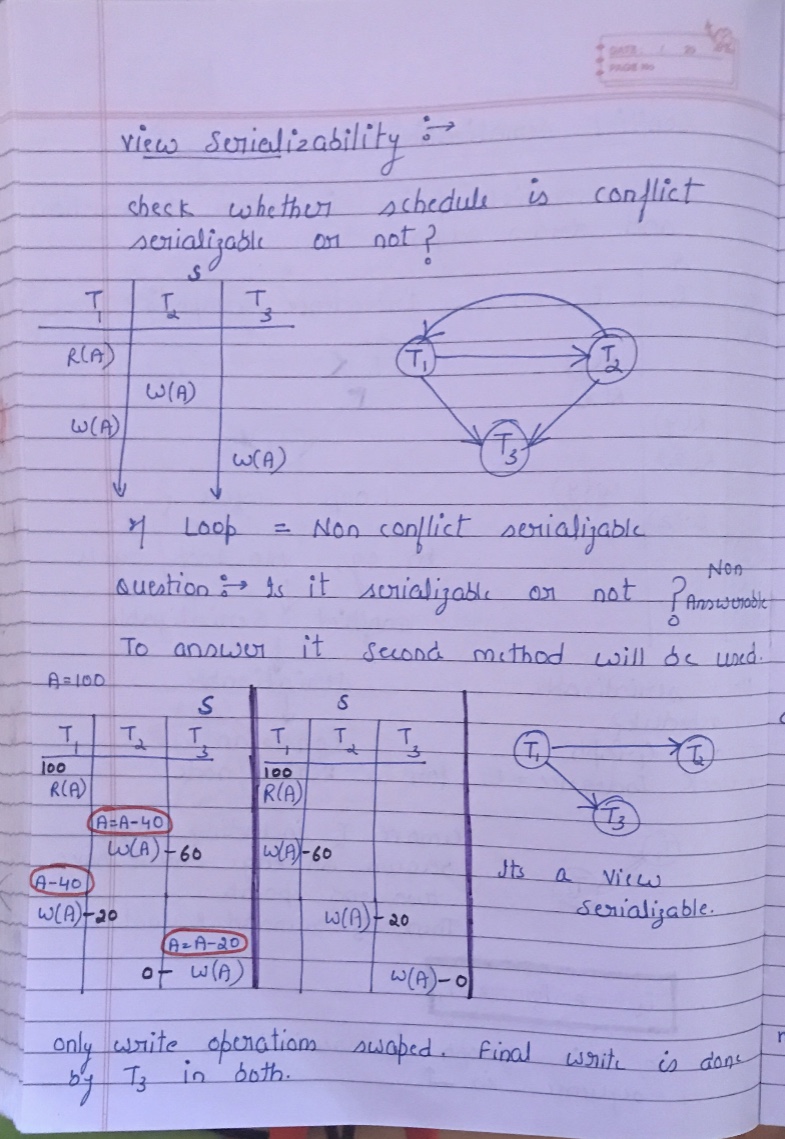 DATE / 20
PAGE NO
View Serializability :→
check whether schedule is conflict
serializable or not?
S
T1 T2 T3
R(A)
W(A)
W(A)
W(A)
T1 T2
T3
if Loop = Non conflict serializable
Question :→ Is it serializable or not ? Non
Answerable
To answer it second method will be used.
A=100
S S
T1 T2 T3 T1 T2 T3
100 100
R(A) R(A)
A=A-40
W(A)-60 W(A)-60
A-40
W(A)-20 W(A)-20
A=A-20
0- W(A) W(A)-0
T1 T2
T3
Its a View
Serializable.
only write operations swaped. Final write is done
by T3 in both.